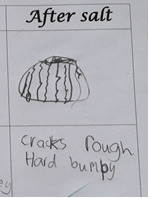 After salt
cracks rough
Hard bumpy
ey